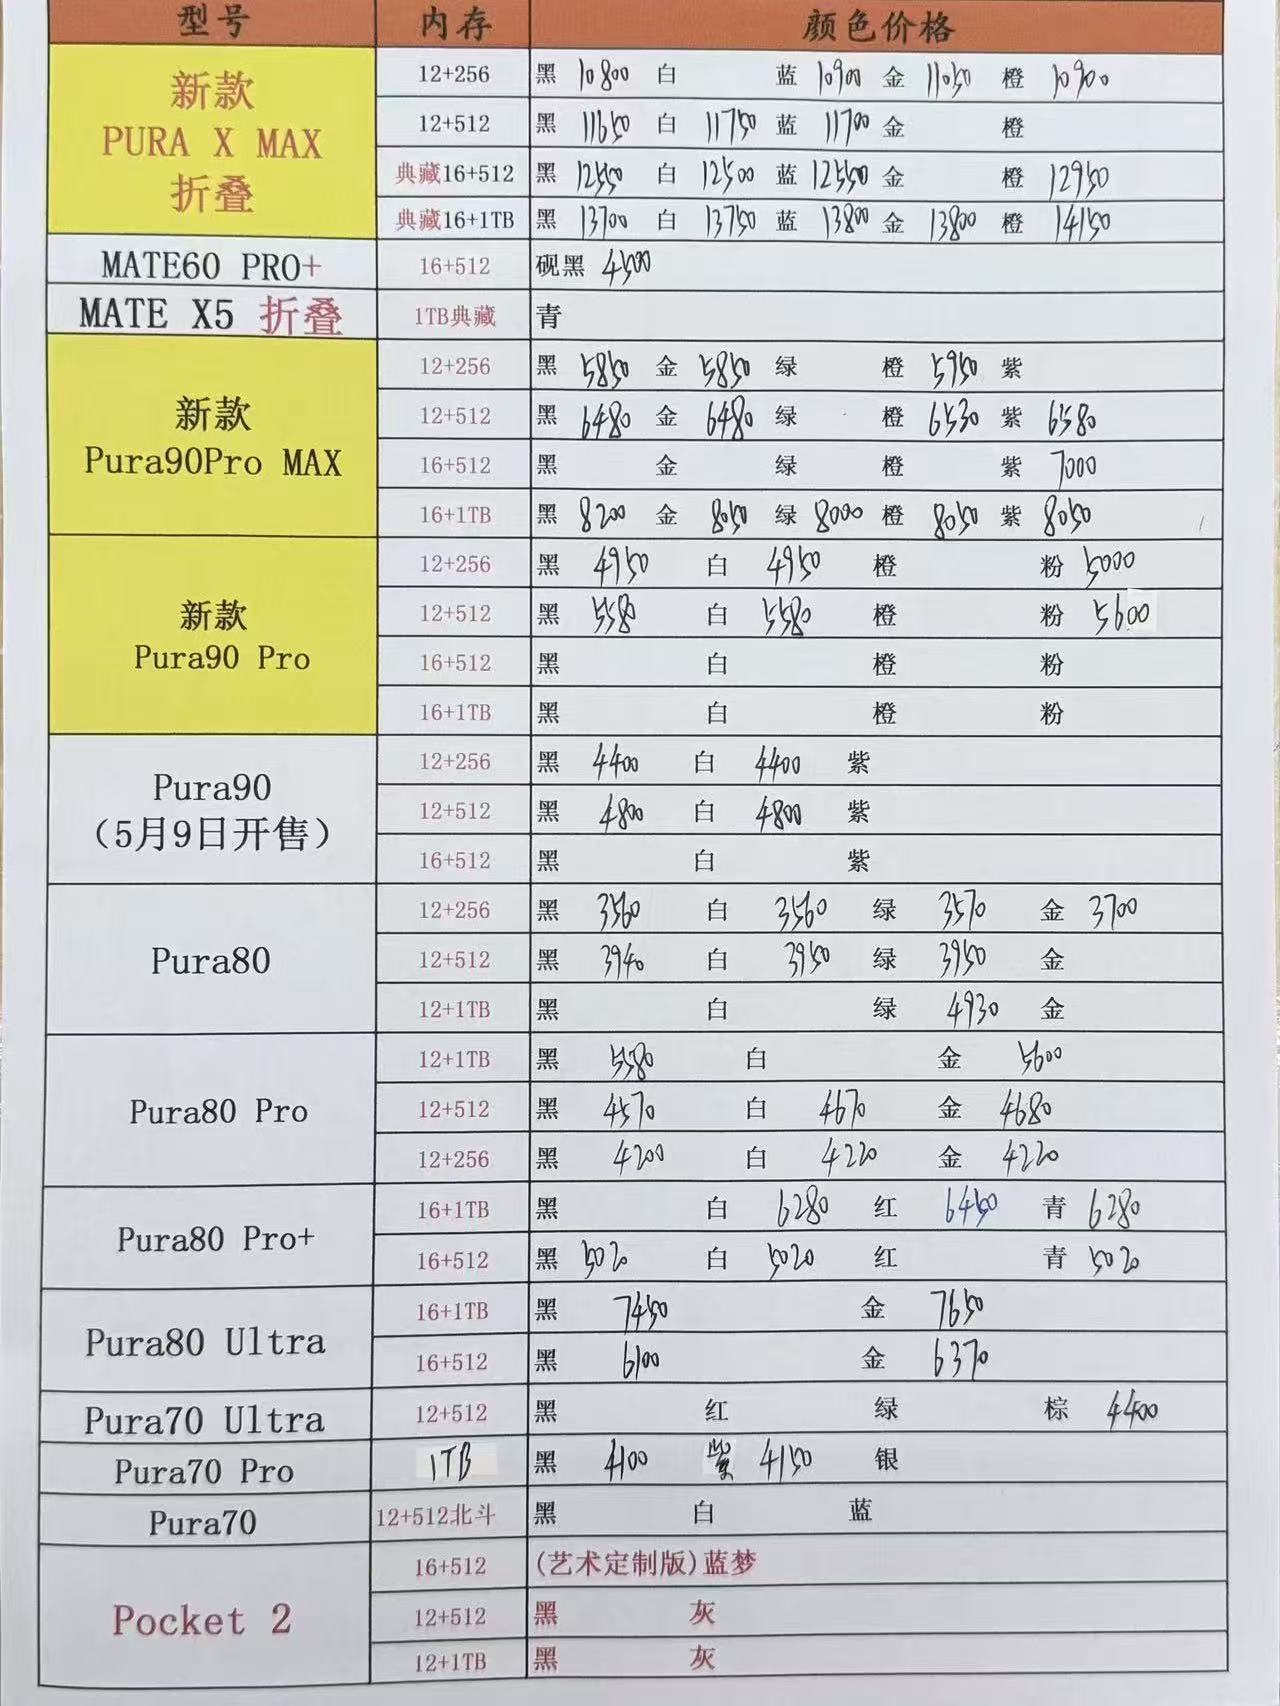 型号 内存 颜色价格
新款 PURA X MAX 折叠
12+256 黑 10800 白 蓝 10900 金 11050 橙 10900
12+512 黑 11650 白 11750 蓝 11700 金 橙
典藏16+512 黑 12550 白 12500 蓝 12550 金 橙 12950
典藏16+1TB 黑 13700 白 13750 蓝 13800 金 13800 橙 14150
MATE60 PRO+ 16+512 砚黑 4500
MATE X5 折叠 1TB典藏 青
新款 Pura90Pro MAX
12+256 黑 5850 金 5850 绿 橙 5950 紫
12+512 黑 6480 金 6480 绿 橙 6530 紫 6580
16+512 黑 金 绿 橙 紫 7000
16+1TB 黑 8200 金 8050 绿 8000 橙 8050 紫 8050
新款 Pura90 Pro
12+256 黑 4950 白 4950 橙 粉 5000
12+512 黑 5580 白 5580 橙 粉 5600
16+512 黑 白 橙 粉
16+1TB 黑 白 橙 粉
Pura90 (5月9日开售)
12+256 黑 4400 白 4400 紫
12+512 黑 4800 白 4800 紫
16+512 黑 白 紫
Pura80
12+256 黑 3560 白 3560 绿 3570 金 3700
12+512 黑 3940 白 3950 绿 3950 金
12+1TB 黑 白 绿 4930 金
Pura80 Pro
12+1TB 黑 5580 白 金 5600
12+512 黑 4570 白 4670 金 4680
12+256 黑 4200 白 4220 金 4220
Pura80 Pro+
16+1TB 黑 白 6280 红 6450 青 6280
16+512 黑 5020 白 5020 红 青 5020
Pura80 Ultra
16+1TB 黑 7450 金 7650
16+512 黑 6100 金 6370
Pura70 Ultra 12+512 黑 红 绿 棕 4400
Pura70 Pro 1TB 黑 4100 紫 4150 银
Pura70 12+512北斗 黑 白 蓝
Pocket 2
16+512 (艺术定制版)蓝梦
12+512 黑 灰
12+1TB 黑 灰